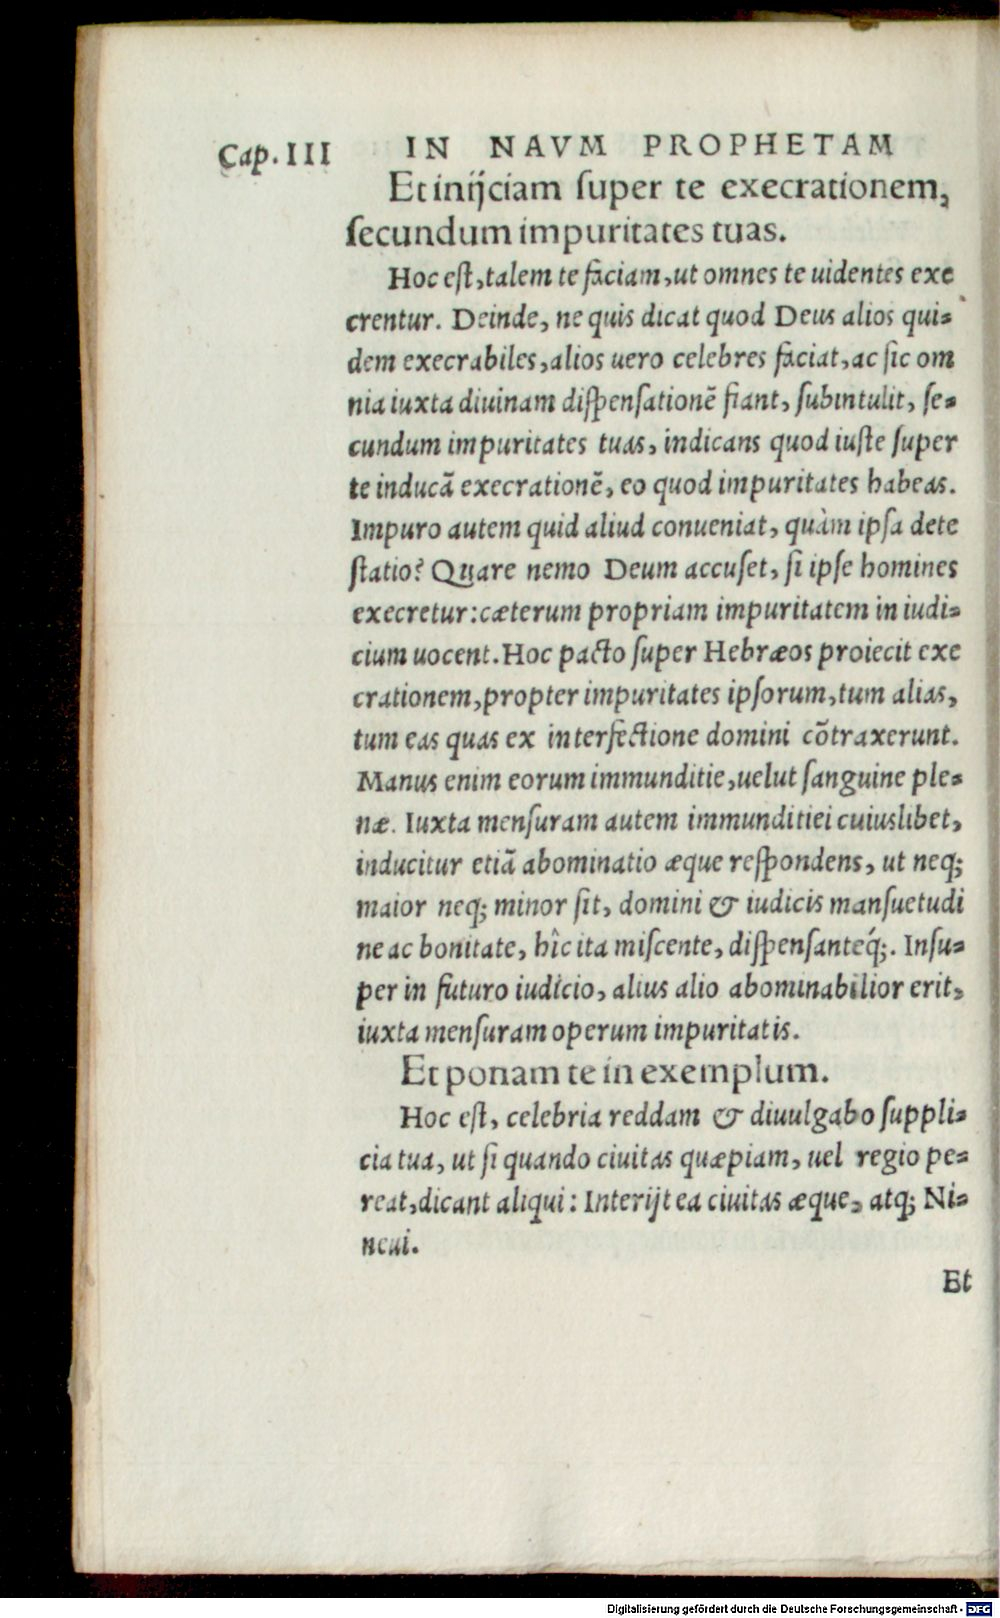 Cap. III IN NAVM PROPHETAM
Et inijciam ſuper te execrationem,
ſecundum impuritates tuas.
Hoc eſt, talem te faciam, ut omnes te uidentes exe
crentur. Deinde, ne quis dicat quod Deus alios qui-
dem execrabiles, alios uero celebres faciat, ac ſic om
nia iuxta diuinam diſpenſationē fiant, ſubintulit, ſe-
cundum impuritates tuas, indicans quod iuſte ſuper
te inducā execrationē, eo quod impuritates habeas.
Impuro autem quid aliud conueniat, quàm ipſa dete
ſtatio? Quare nemo Deum accuſet, ſi ipſe homines
execretur: cæterum propriam impuritatem in iudi-
cium uocent. Hoc pacto ſuper Hebræos proiecit exe
crationem, propter impuritates ipſorum, tum alias,
tum eas quas ex interfectione domini cōtraxerunt.
Manus enim eorum immunditie, uelut ſanguine ple-
næ. Iuxta menſuram autem immunditiei cuiuslibet,
inducitur etiā abominatio æque reſpondens, ut neq;
maior neq; minor ſit, domini & iudicis manſuetudi
ne ac bonitate, hîc ita miſcente, diſpenſanteq́;. Inſu-
per in futuro iudicio, alius alio abominabilior erit,
iuxta menſuram operum impuritatis.
Et ponam te in exemplum.
Hoc eſt, celebria reddam & diuulgabo ſuppli-
cia tua, ut ſi quando ciuitas quæpiam, uel regio pe-
reat, dicant aliqui: Interijt ea ciuitas æque, atq; Ni-
neui.
Et
Digitalisierung gefördert durch die Deutsche Forschungsgemeinschaft - DFG